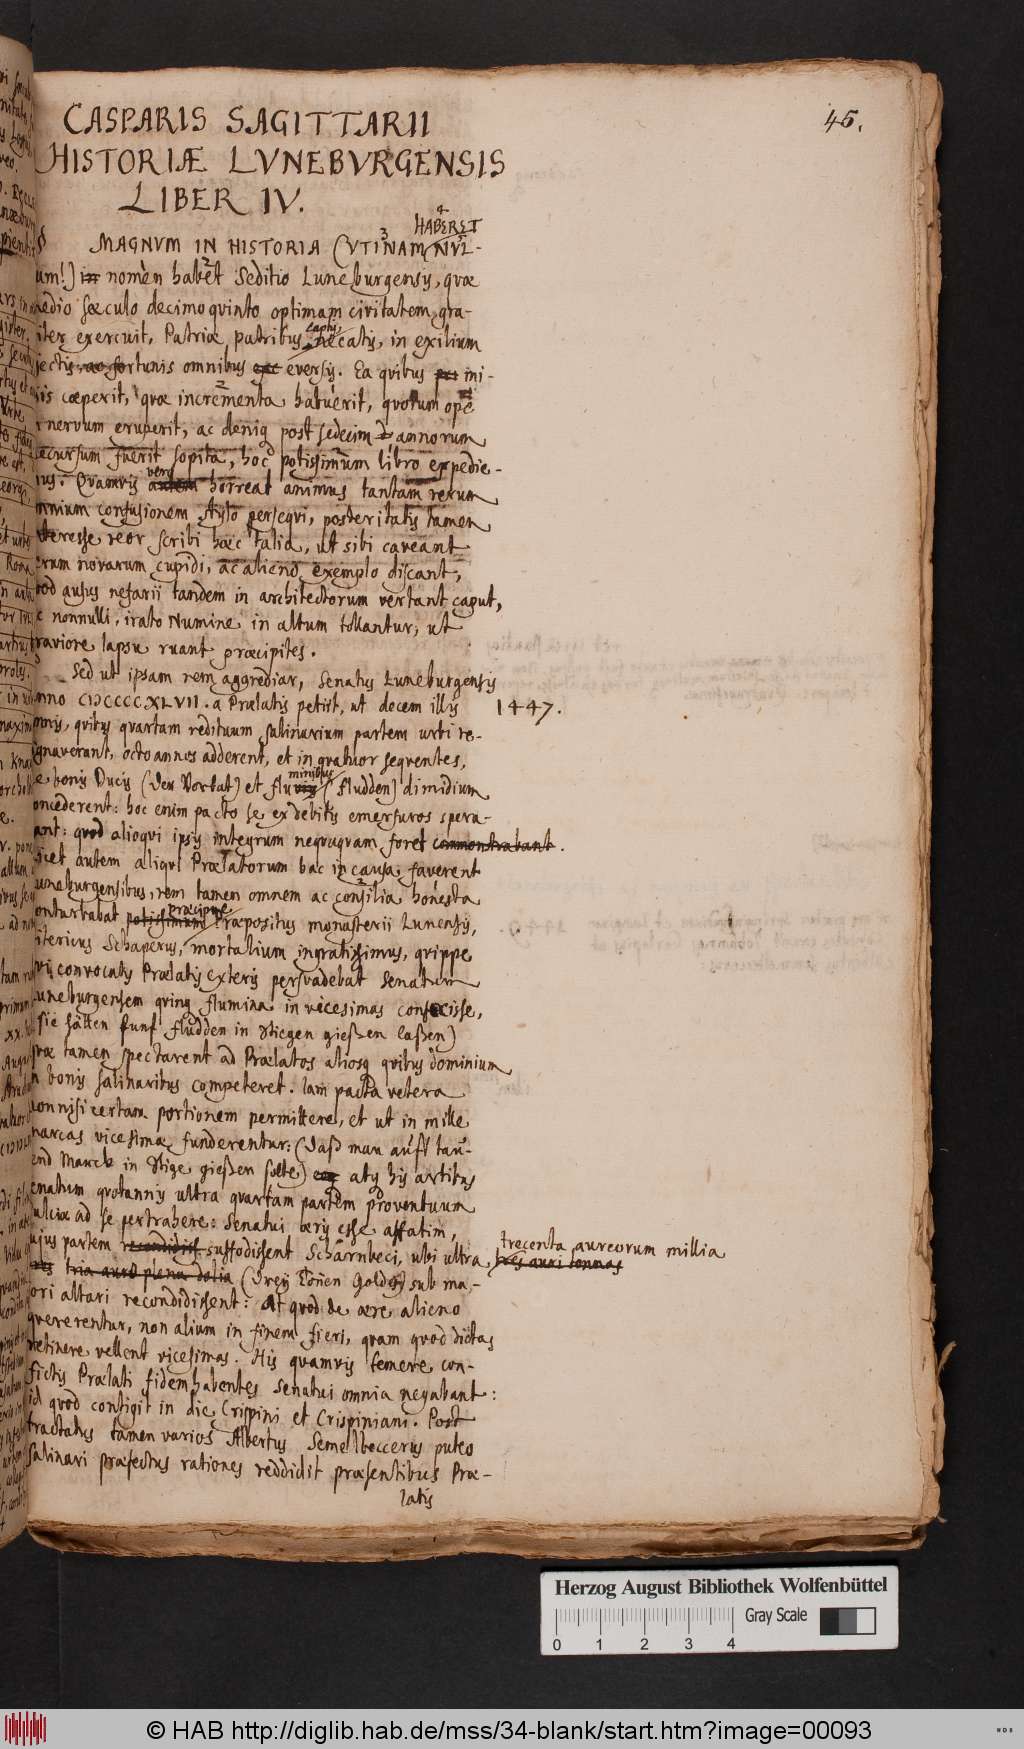 45.
CASPARIS SAGITTARII
HISTORIÆ LVNEBVRGENSIS
LIBER IV.
HABERET
MAGNVM IN HISTORIA (VTINAM NVL-
um!) in nomen habet Seditio Luneburgensis, quæ
medio sæculo decimo quinto optimam civitatem gra-
iter exercuit, Patriæ patribus captis, necatis, in exilium
jectis, ac fortunis omnibus eversis. Ea quibus ini-
iis cæperit, quæ incrementa habuerit, quorum ope
nervum eruperit, ac deniq post sedecim annorum
ecursum fuerit sopita, hoc potissimum libro expedie-
mus. Quamvis vero autem horreat animus tantam rerum
mnium confusionem stylo persequi, posteritatis tamen
nteresse reor scribi hæc talia, ut sibi caveant
erum novarum cupidi, ac alieno exemplo discant,
uod ausus nefarii tandem in architectorum vertant caput,
c nonnulli, irato Numine in altum tollantur, ut
raviore lapsu ruant præcipites.
Sed ut ipsam rem aggrediar, Senatus Luneburgensis
nno CIƆCCCCXLVII. a Prælatis petiit, ut decem illis
1447.
nnis, quibus quartam redituum salinarium partem urbi re-
gnaverant, octo annos adderent, et in quatuor sequentes,
e bonis Ducis (den Vorbat) et fluminibus (Fludden) dimidium
oncederent: hoc enim pacto se ex debitis emersuros spera-
ant: quod alioqui ipsis integrum nequaquam foret commonstrabant.
icet autem aliqui Prælatorum hac in causa faverent
uneburgensibus, rem tamen omnem ac consilia honesta
onturbabat potissimum præcipue Præpositus monasterii Lunensis,
itericus Schaperus, mortalium ingratissimus, quippe
ui convocatis Prælatis exteris persvadebat Senatum
Luneburgensem quinq flumina in vicesimas conjecisse,
(sie hätten funf Fludden in Stiegen gießen laßen)
quæ tamen spectarent ad Prælatos aliosq quibus dominium
n bonis salinaribus competeret. Iam pacta vetera
nonnisi certam portionem permittere, et ut in mille
marcas vicesimæ funderentur: (daß man auff tau-
end Marck in Stige gießen solte) atq his artibus
enatum quotannis ultra quartam partem proventuum
ulciæ ad se pertrahere: Senatui æris esse affatim,
ujus partem recondidiss suffodissent Scharnbeci, ubi ultra trecenta aureorum millia
tres auri tonnas
tria auro plena dolia (Dreÿ Tonnen Goldes) sub ma-
ori altari recondidissent: At quod de ære alieno
quererentur, non alium in finem fieri, quam quod dictas
retinere vellent vicesimas. His quamvis temere con-
fictis Prælati fidem habentes Senatui omnia negabant:
id quod contigit in die Crispini et Crispiniani. Post
tractatus tamen varios Albertus Semelbeccerus puteo
salinari præfectus rationes reddidit præsentibus Præ-
latis
Herzog August Bibliothek Wolfenbüttel
Gray Scale
0 1 2 3 4
© HAB http://diglib.hab.de/mss/34-blank/start.htm?image=00093